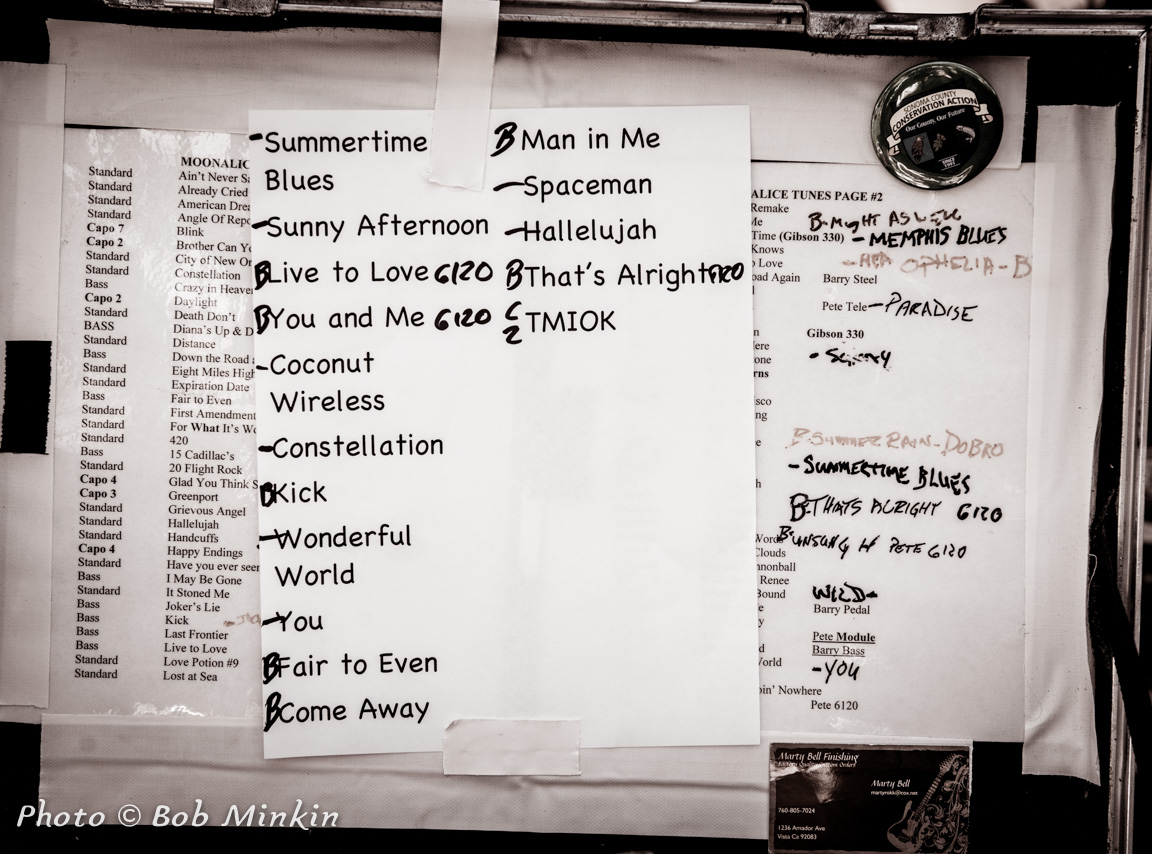 MOONALIC
Standard Ain't Never S
Standard Already Cried
Standard American Drea
Standard Angle Of Repo
Capo 7 Blink
Capo 2 Brother Can Yo
Standard City of New Or
Standard Constellation
Bass Crazy in Heaven
Capo 2 Daylight
Standard Death Don't
BASS Diana's Up & D
Standard Distance
Bass Down the Road
Standard Eight Miles High
Standard Expiration Date
Bass Fair to Even
Standard First Amendment
Standard For What It's Wo
Standard 420
Bass 15 Cadillac's
Standard 20 Flight Rock
Capo 4 Glad You Think S
Capo 3 Greenport
Standard Grievous Angel
Standard Hallelujah
Standard Handcuffs
Capo 4 Happy Endings
Standard Have you ever seen
Bass I May Be Gone
Standard It Stoned Me
Bass Joker's Lie
Bass Kick
Bass Last Frontier
Bass Live to Love
Standard Love Potion #9
Standard Lost at Sea
-Summertime
Blues
-Sunny Afternoon
B Live to Love 6120
B You and Me 6120
-Coconut
Wireless
-Constellation
B Kick
-Wonderful
World
-You
B Fair to Even
B Come Away
B Man in Me
-Spaceman
-Hallelujah
B That's Alright 6120
C2 TMIOK
ALICE TUNES PAGE #2
Remake
Me B-MIGHT AS WELL
Time (Gibson 330) - MEMPHIS BLUES
Knows
o Love OPHELIA-B
oad Again Barry Steel
Pete Tele-PARADISE
Gibson 330
ere
one
rns
sco
ng
B-SUMMER RAIN-DOBRO
-SUMMERTIME BLUES
B-THATS ALRIGHT 6120
Words B PETE 6120
Clouds
nnonball
Renee
Bound WILD-
Barry Pedal
Pete Module
Barry Bass
World -YOU
oin' Nowhere
Pete 6120
SONOMA COUNTY
CONSERVATION ACTION
Our County, Our Future
SINCE
Marty Bell Finishing
Factory Quality Custom Orders
Marty Bell
martyrokk@cox.net
760-805-7024
1236 Amador Ave
Vista Ca 92083
Photo © Bob Minkin